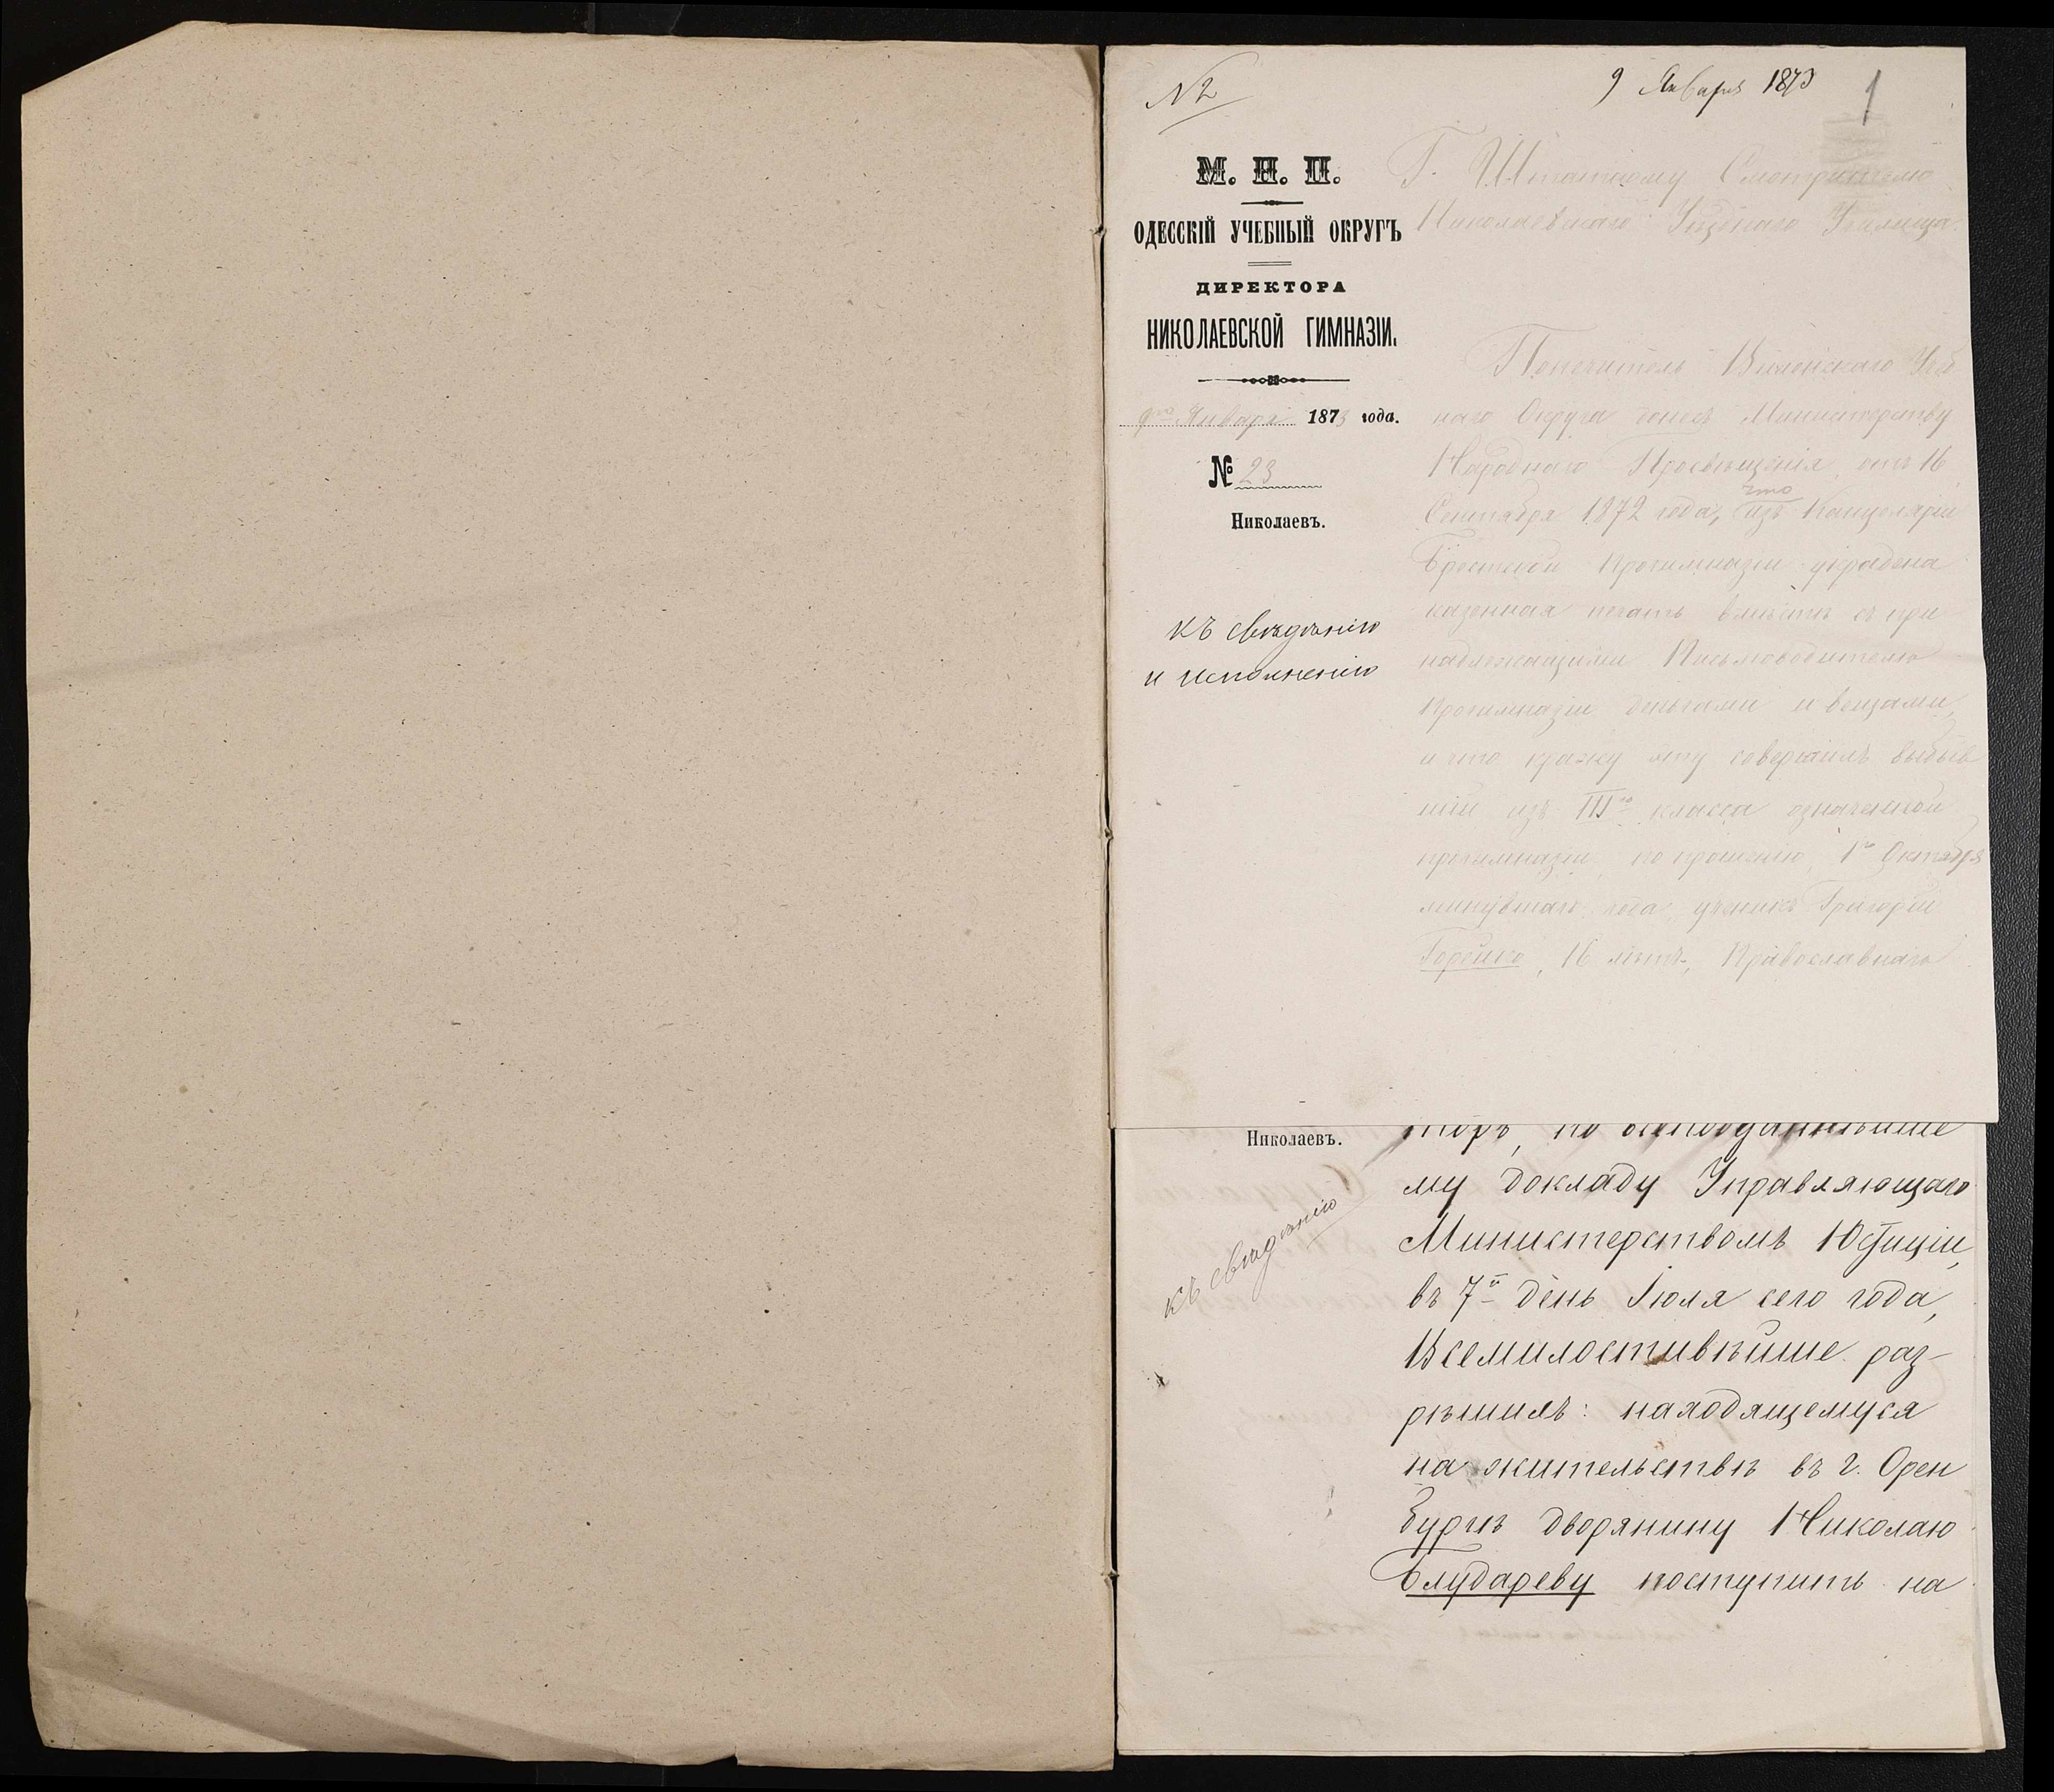 № 2
9 Января 1873
1
М. Н. П.
ОДЕССКІЙ УЧЕБНЫЙ ОКРУГЪ
ДИРЕКТОРА
НИКОЛАЕВСКОЙ ГИМНАЗІИ.
9го Января 1873 года.
№ 23
Николаевъ.
къ свѣдѣнію
и исполненію
Г. Штатному Смотрителю
Николаевскаго Уѣзднаго Училища.
Попечитель Виленскаго Учеб
наго Округа донесъ Министерству
Народнаго Просвѣщенія, отъ 16
что
Сентября 1872 года, изъ Канцеляріи
Брестской Прогимназіи украдена
казенная печать вмѣстѣ съ при
надлежащими Письмоводителю
Прогимназіи деньгами и вещами,
и что кражу эту совершилъ выбыв
шій изъ IIIго класса означенной
прогимназіи, по прошенію, 1го Октября
минувшаго года, ученикъ Григорій
16 лѣтъ, Православнаго
Николаевъ.
къ свѣдѣнію
торъ, по всеподданнѣйше
му докладу Управляющаго
Министерствомъ Юстиціи,
въ 7й день Іюля сего года,
Всемилостивѣйше раз-
рѣшилъ: находящемуся
на жительствѣ въ г. Орен
бургѣ дворянину Николаю
Блудареву поступить на